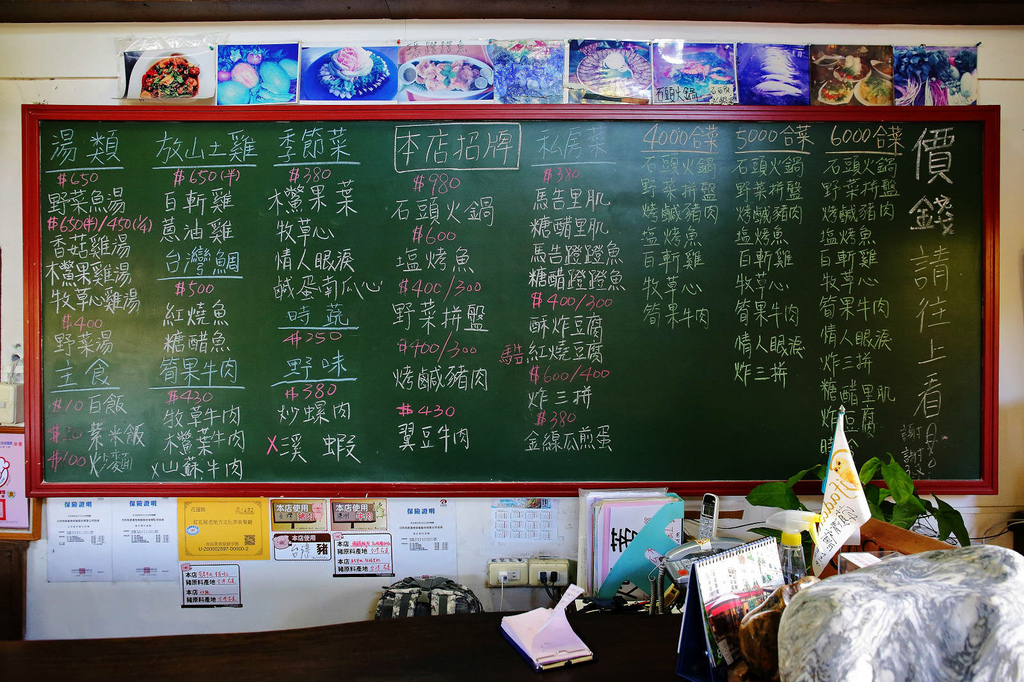 湯類
$650
野菜魚湯
$650(半)/450(¼)
香菇雞湯
木鱉果雞湯
牧草心雞湯
$400
野菜湯
主食
$10白飯
紫米飯
$100炒麵
放山土雞
$650(半)
白斬雞
蔥油雞
台灣鯛
$500
紅燒魚
糖醋魚
筍果牛肉
$430
牧草牛肉
木鱉葉牛肉
x山蘇牛肉
季節菜
$380
木鱉果葉
牧草心
情人眼淚
鹹蛋南瓜心
時蔬
$250
野味
$380
炒螺肉
x溪蝦
本店招牌
$980
石頭火鍋
$600
塩烤魚
$400/300
野菜拼盤
$400/300
烤鹹豬肉
$430
翼豆牛肉
私房菜
$380
馬告里肌
糖醋里肌
馬告蹬蹬魚
糖醋蹬蹬魚
$400/300
酥炸豆腐
紅燒豆腐
$600/400
炸三拼
$380
金線瓜煎蛋
4000合菜
石頭火鍋
野菜拼盤
烤鹹豬肉
塩烤魚
白斬雞
牧草心
筍果牛肉
5000合菜
石頭火鍋
野菜拼盤
烤鹹豬肉
塩烤魚
白斬雞
牧草心
筍果牛肉
情人眼淚
炸三拼
6000合菜
石頭火鍋
野菜拼盤
烤鹹豬肉
塩烤魚
白斬雞
牧草心
筍果牛肉
情人眼淚
炸三拼
糖醋里肌
炸豆腐
價錢請往上看
謝謝
石頭火鍋
保險證明
保險證明
本店使用
本店使用
台灣豬
本店
豬原料產地
本店
豬原料產地
本店
豬原料產地
本店
豬原料產地
保險證明